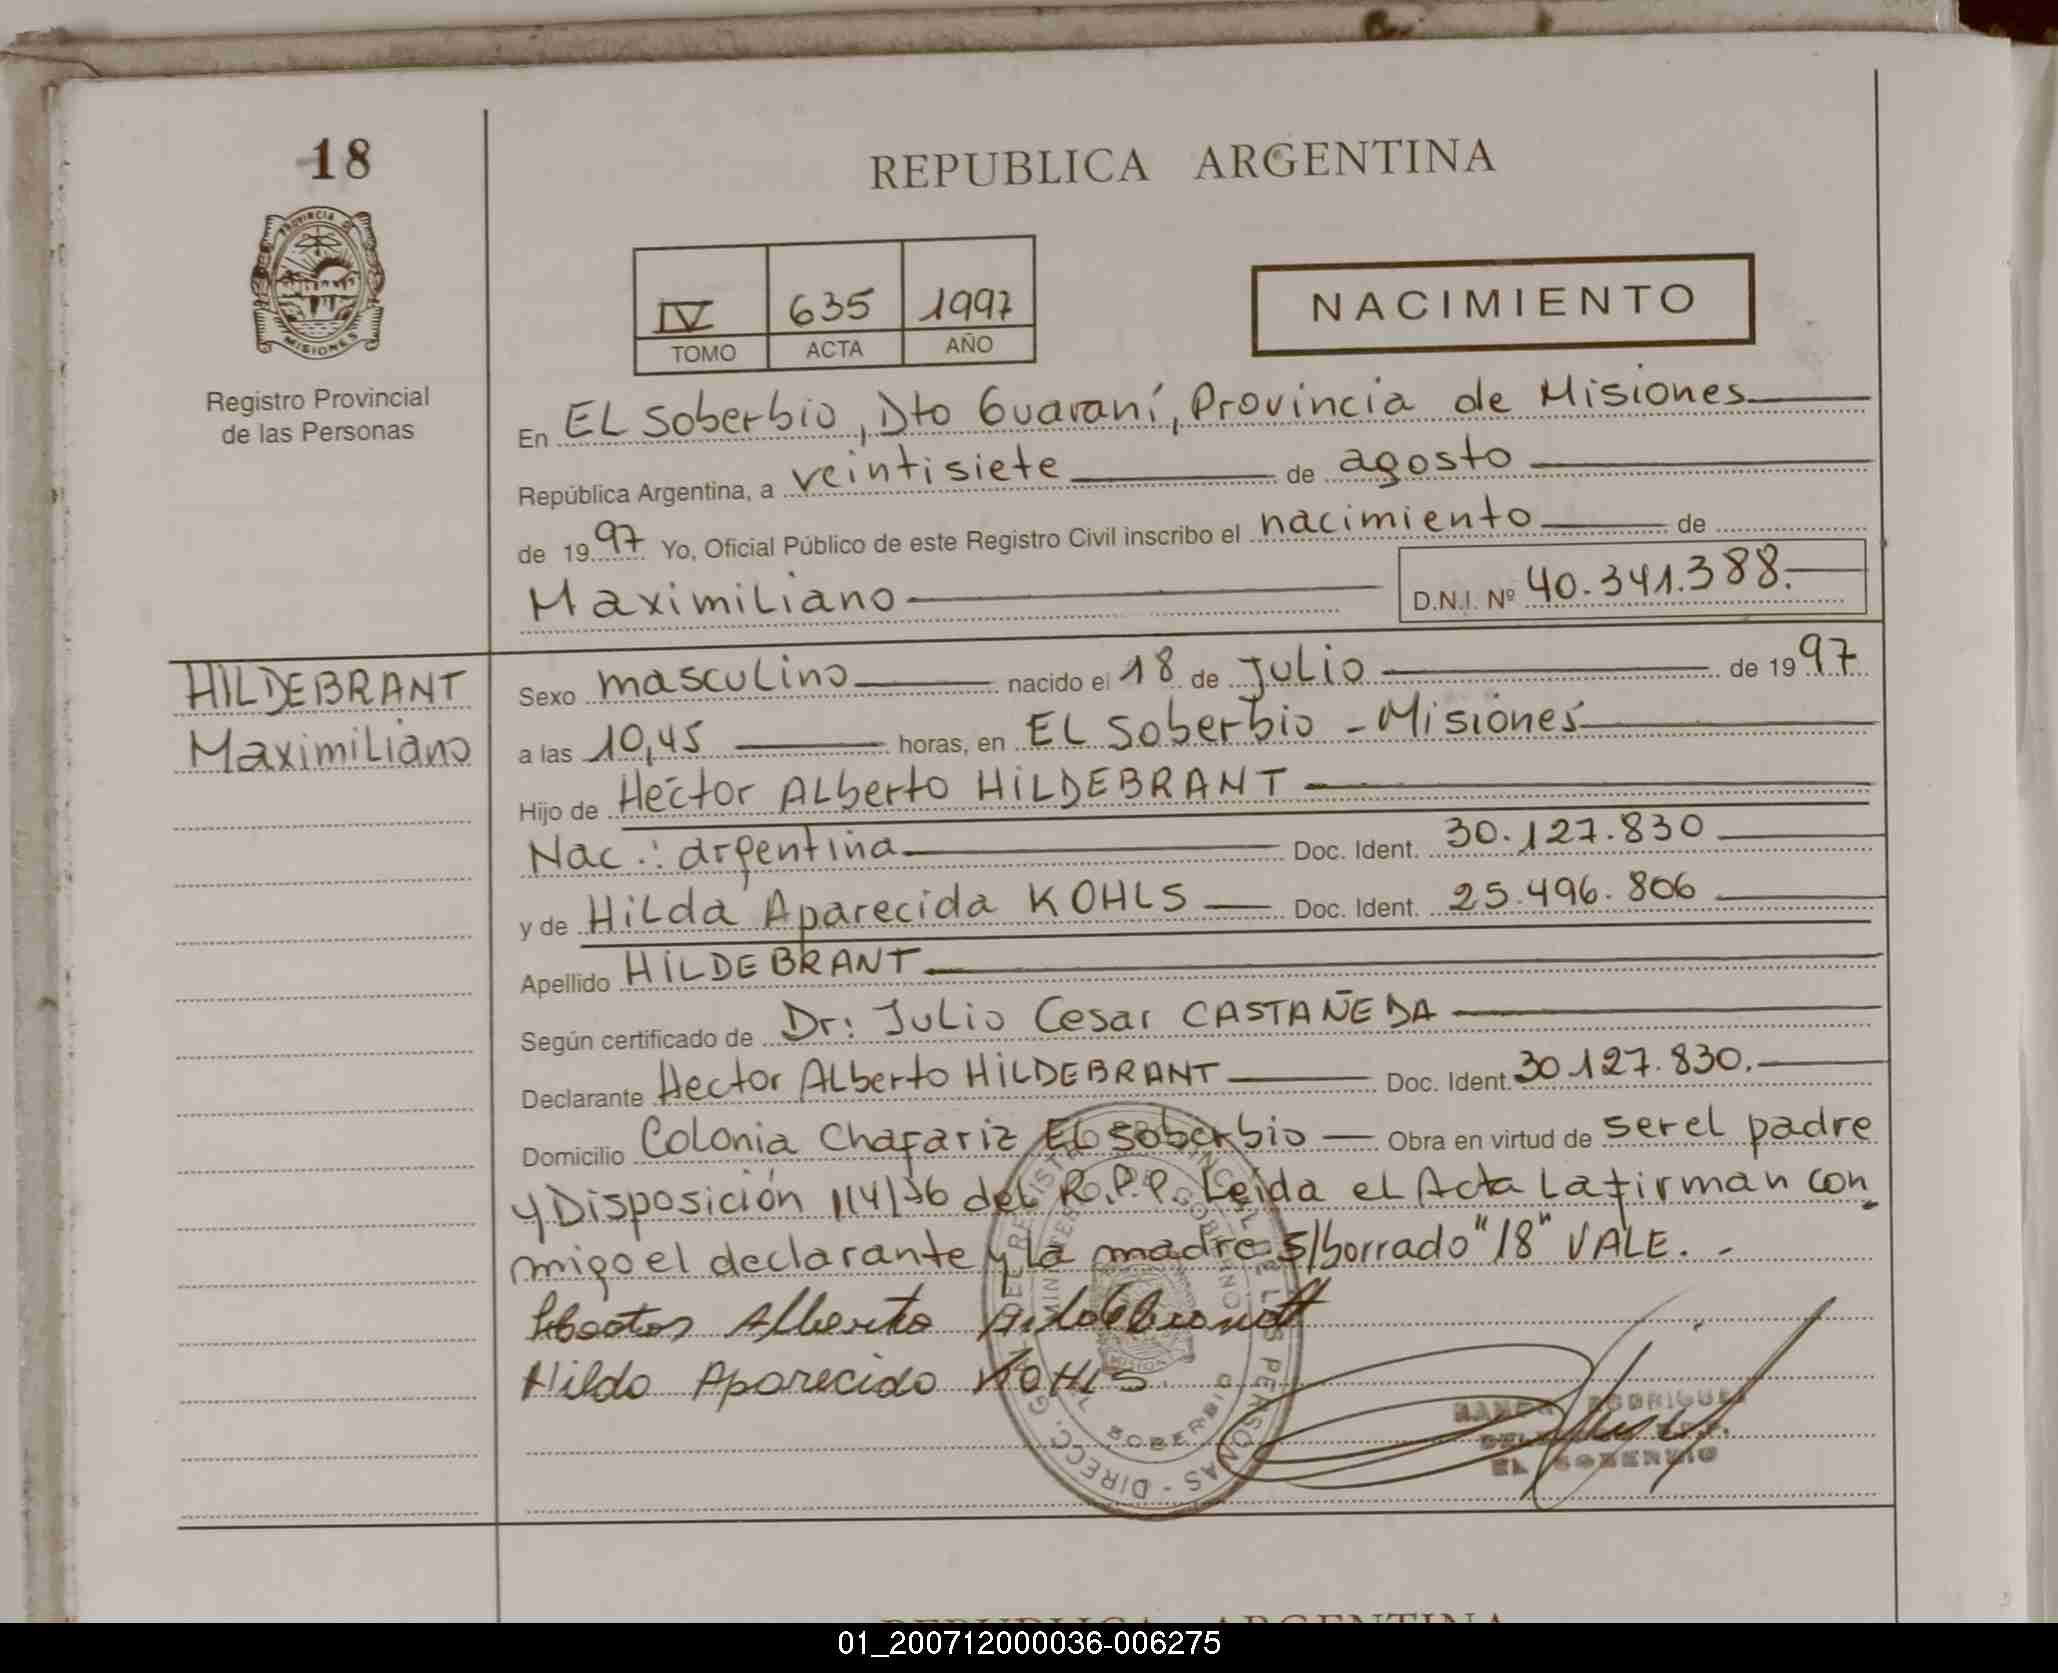 18
REPUBLICA ARGENTINA
PROVINCIA DE
MISIONES
IV 635 1997
TOMO ACTA AÑO
NACIMIENTO
Registro Provincial
de las Personas
En EL Soberbio, Dto Guaraní, Provincia de Misiones
República Argentina, a veintisiete de agosto
de 1997 Yo, Oficial Público de este Registro Civil inscribo el nacimiento de
Maximiliano D.N.I. Nº 40.341.388.
HILDEBRANT
Maximiliano
Sexo masculino nacido el 18 de Julio de 1997
a las 10,45 horas, en EL Soberbio - Misiones
Hijo de Hector ALberto HILDEBRANT
Nac.: argentina Doc. Ident. 30.127.830
y de Hilda Aparecida KOHLS Doc. Ident. 25.496.806
Apellido HILDEBRANT
Según certificado de Dr: Julio Cesar CASTAÑEDA
Declarante Hector ALberto HILDEBRANT Doc. Ident. 30.127.830.
Domicilio Colonia Chafariz EL Soberbio Obra en virtud de ser el padre
y Disposición 114/76 del R.P.P. Leida el Acta La firman con
migo el declarante y la madre S/borrado "18" VALE. -
Hector Alberto Hildebrandt
Hilda Aparecida KOHLS
RODRIGUEZ
EL SOBERBIO
DIRECC. G DEL REGISTRO PROVINCIAL DE LAS PERSONAS -
MINISTERIO DE GOBIERNO
EL SOBERBIO
MISIONES
REPUBLICA ARGENTINA
01_200712000036-006275